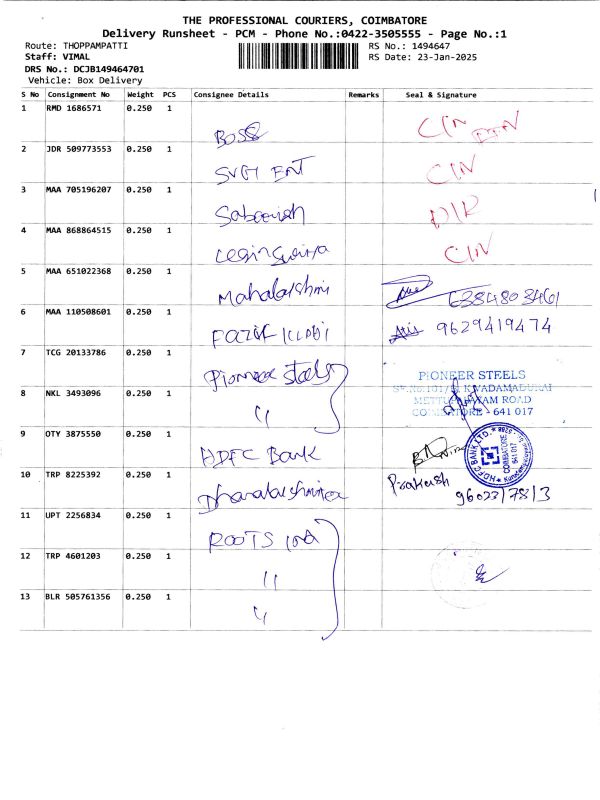 THE PROFESSIONAL COURIERS, COIMBATORE
Delivery Runsheet - PCM - Phone No.:0422-3505555 - Page No.:1
Route: THOPPAMPATTI
Staff: VIMAL
DRS No.: DCJB149464701
Vehicle: Box Delivery
RS No.: 1494647
RS Date: 23-Jan-2025
S No Consignment No Weight PCS Consignee Details Remarks Seal & Signature
1 RMD 1686571 0.250 1 BOSS
2 JDR 509773553 0.250 1 SVGI ENT
3 MAA 705196207 0.250 1
4 MAA 868864515 0.250 1
5 MAA 651022368 0.250 1 Mahalakshmi 6384803461
6 MAA 110508601 0.250 1 9629419474
7 TCG 20133786 0.250 1 Pioneer Steels
PIONEER STEELS
KVADAMADURAI
ROAD
COIMBATORE - 641 017
8 NKL 3493096 0.250 1 "
9 OTY 3875550 0.250 1 HDFC Bank
HDFC BANK LTD.
COIMBATORE
641 017
10 TRP 8225392 0.250 1 Prakash
11 UPT 2256834 0.250 1 ROOTS Ind
12 TRP 4601203 0.250 1 "
13 BLR 505761356 0.250 1 "